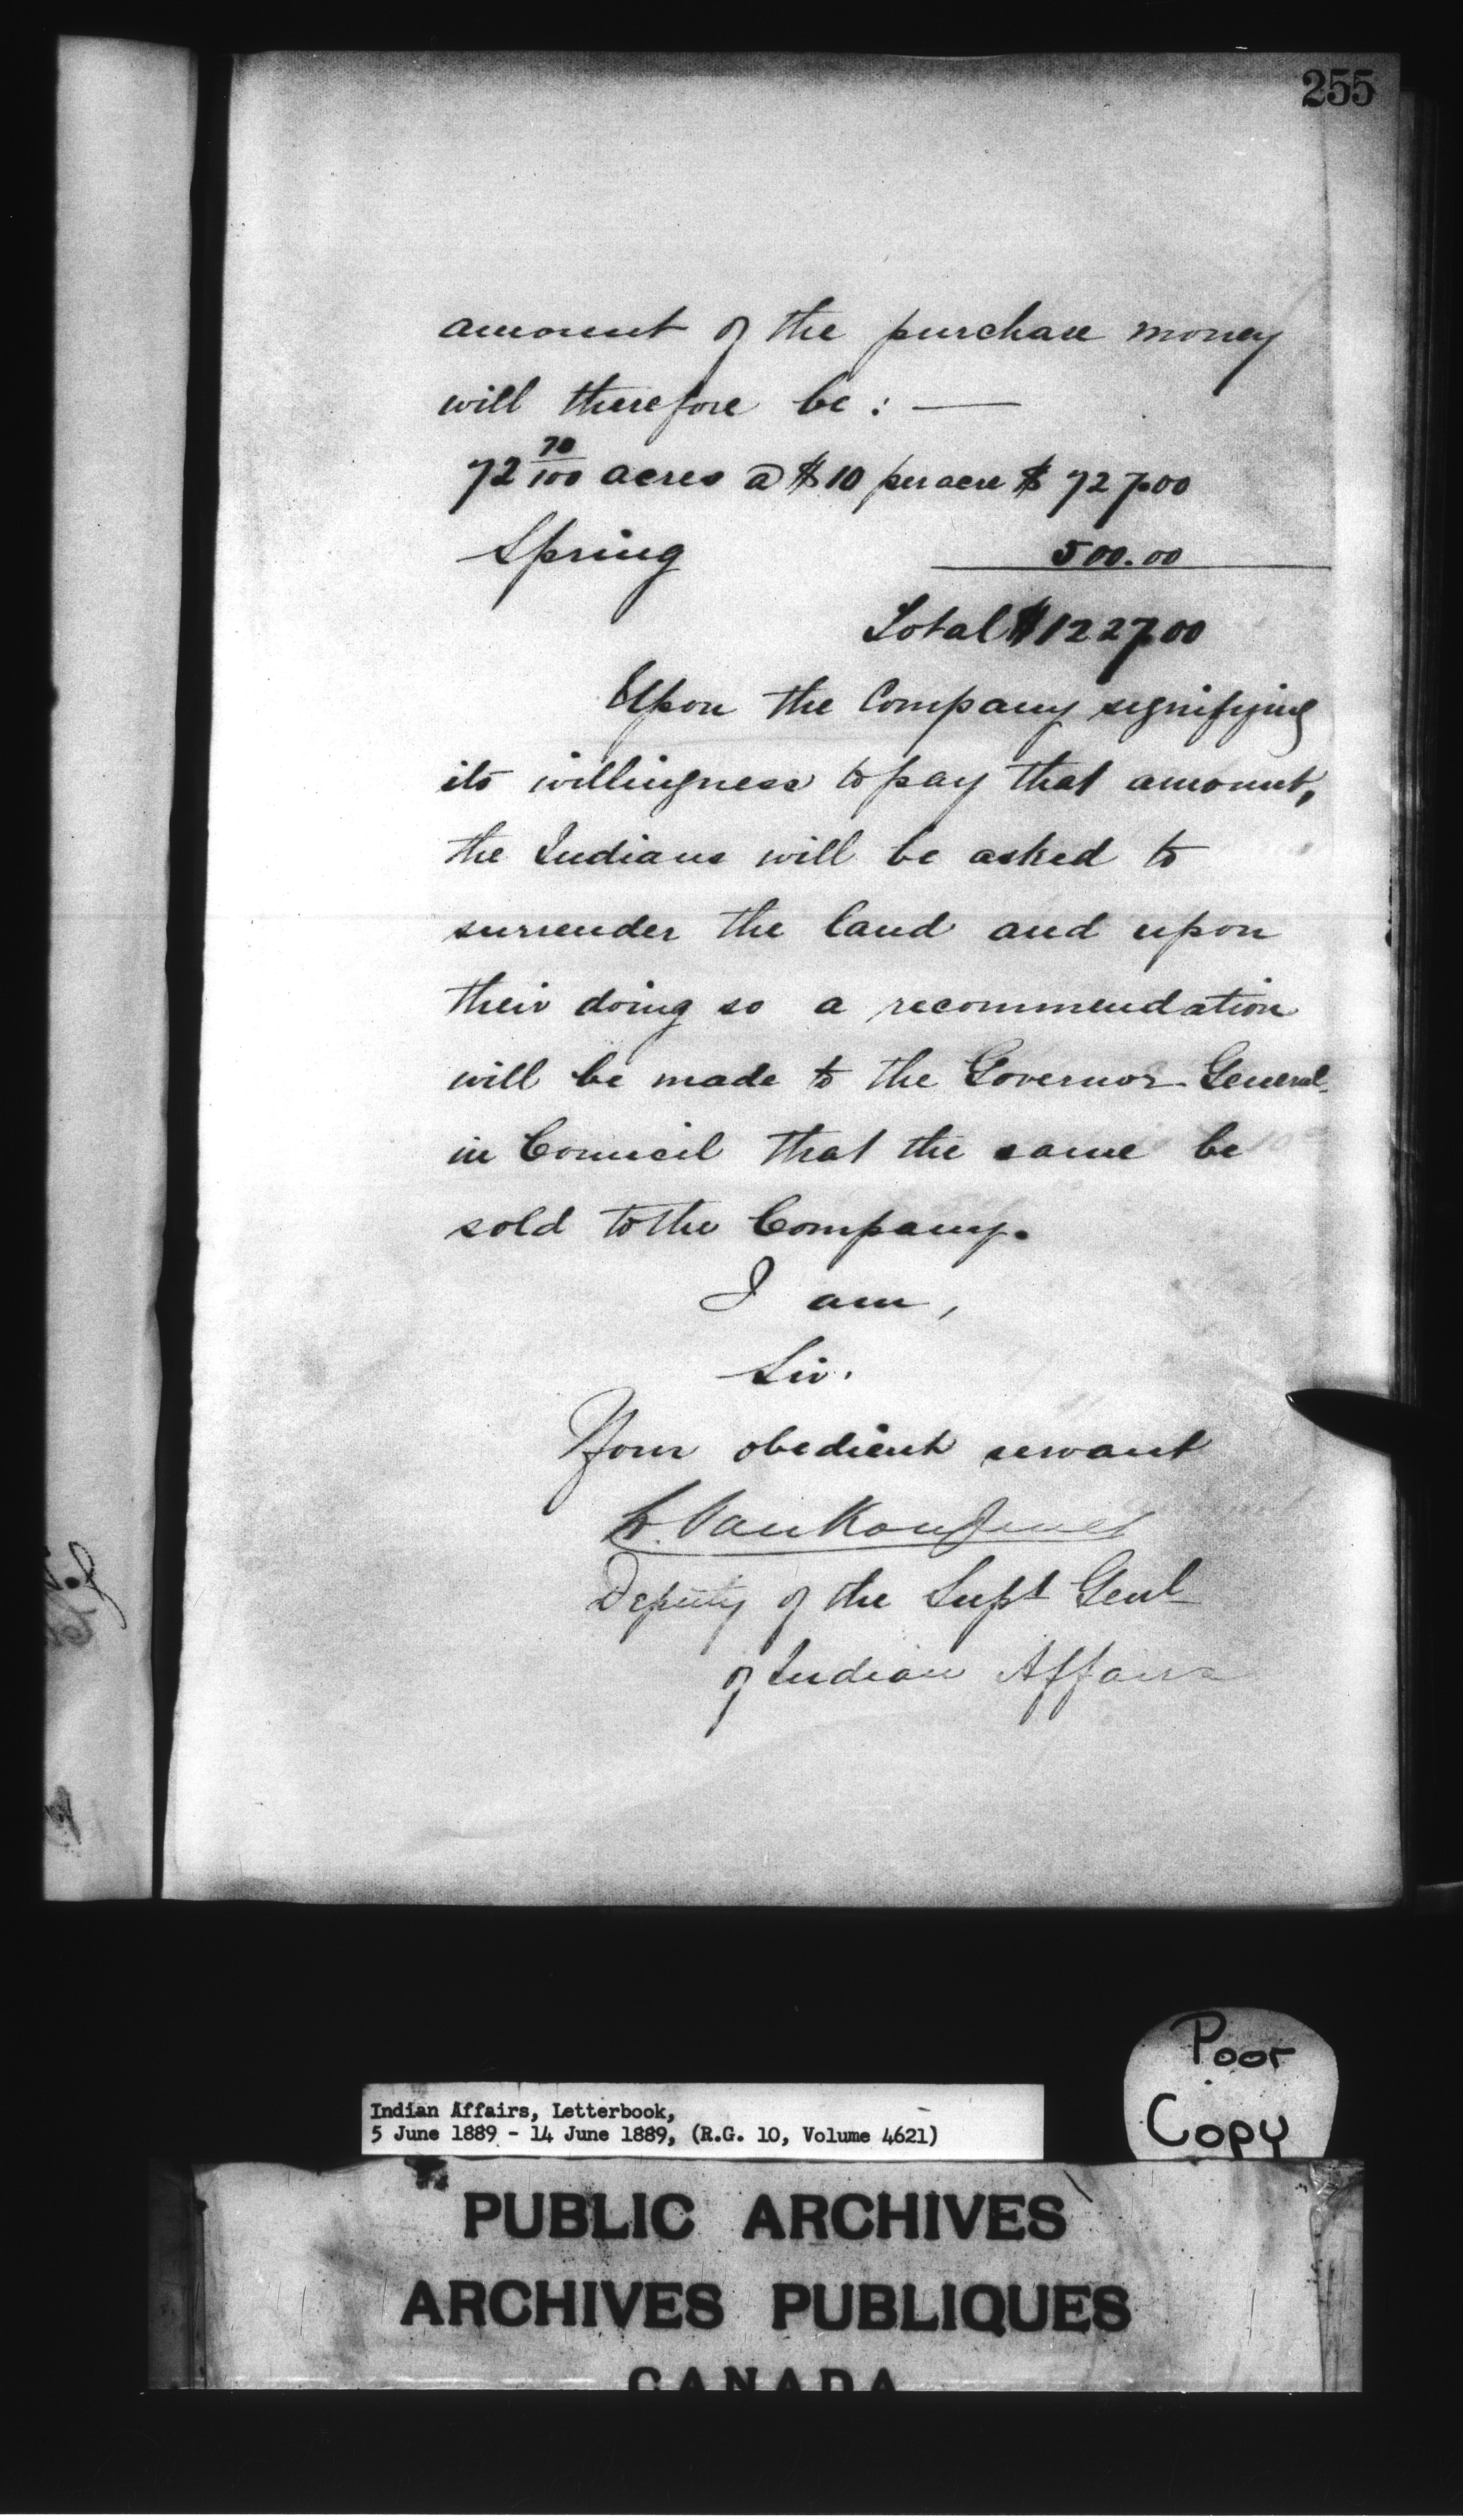 255
amount of the purchase money
will therefore be: —
72 70/100 acres @ $10 per acre $ 727.00
Spring 500.00
Total $1227.00
Upon the Company signifying
its willingness to pay that amount,
the Indians will be asked to
surrender the land and upon
their doing so a recommendation
will be made to the Governor General
in Council that the same be
sold to the Company.
I am,
Sir.
Your obedient servant
L. VanKoughnet
Deputy of the Supt Genl
of Indian Affairs
Poor
Copy
Indian Affairs, Letterbook,
5 June 1889 - 14 June 1889, (R.G. 10, Volume 4621)
PUBLIC ARCHIVES
ARCHIVES PUBLIQUES
CANADA